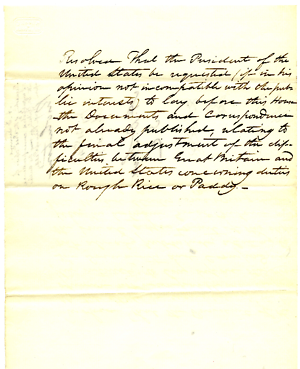 Resolved That the President of the
United States be requested (if in his
opinion not incompatible with the pub-
lic interests) to lay before this House
the Documents and Correspondence
not already published, relating to
the final adjustment of the dif-
ficulties between Great Britain and
the United States concerning duties
on Rough Rice or Paddy—